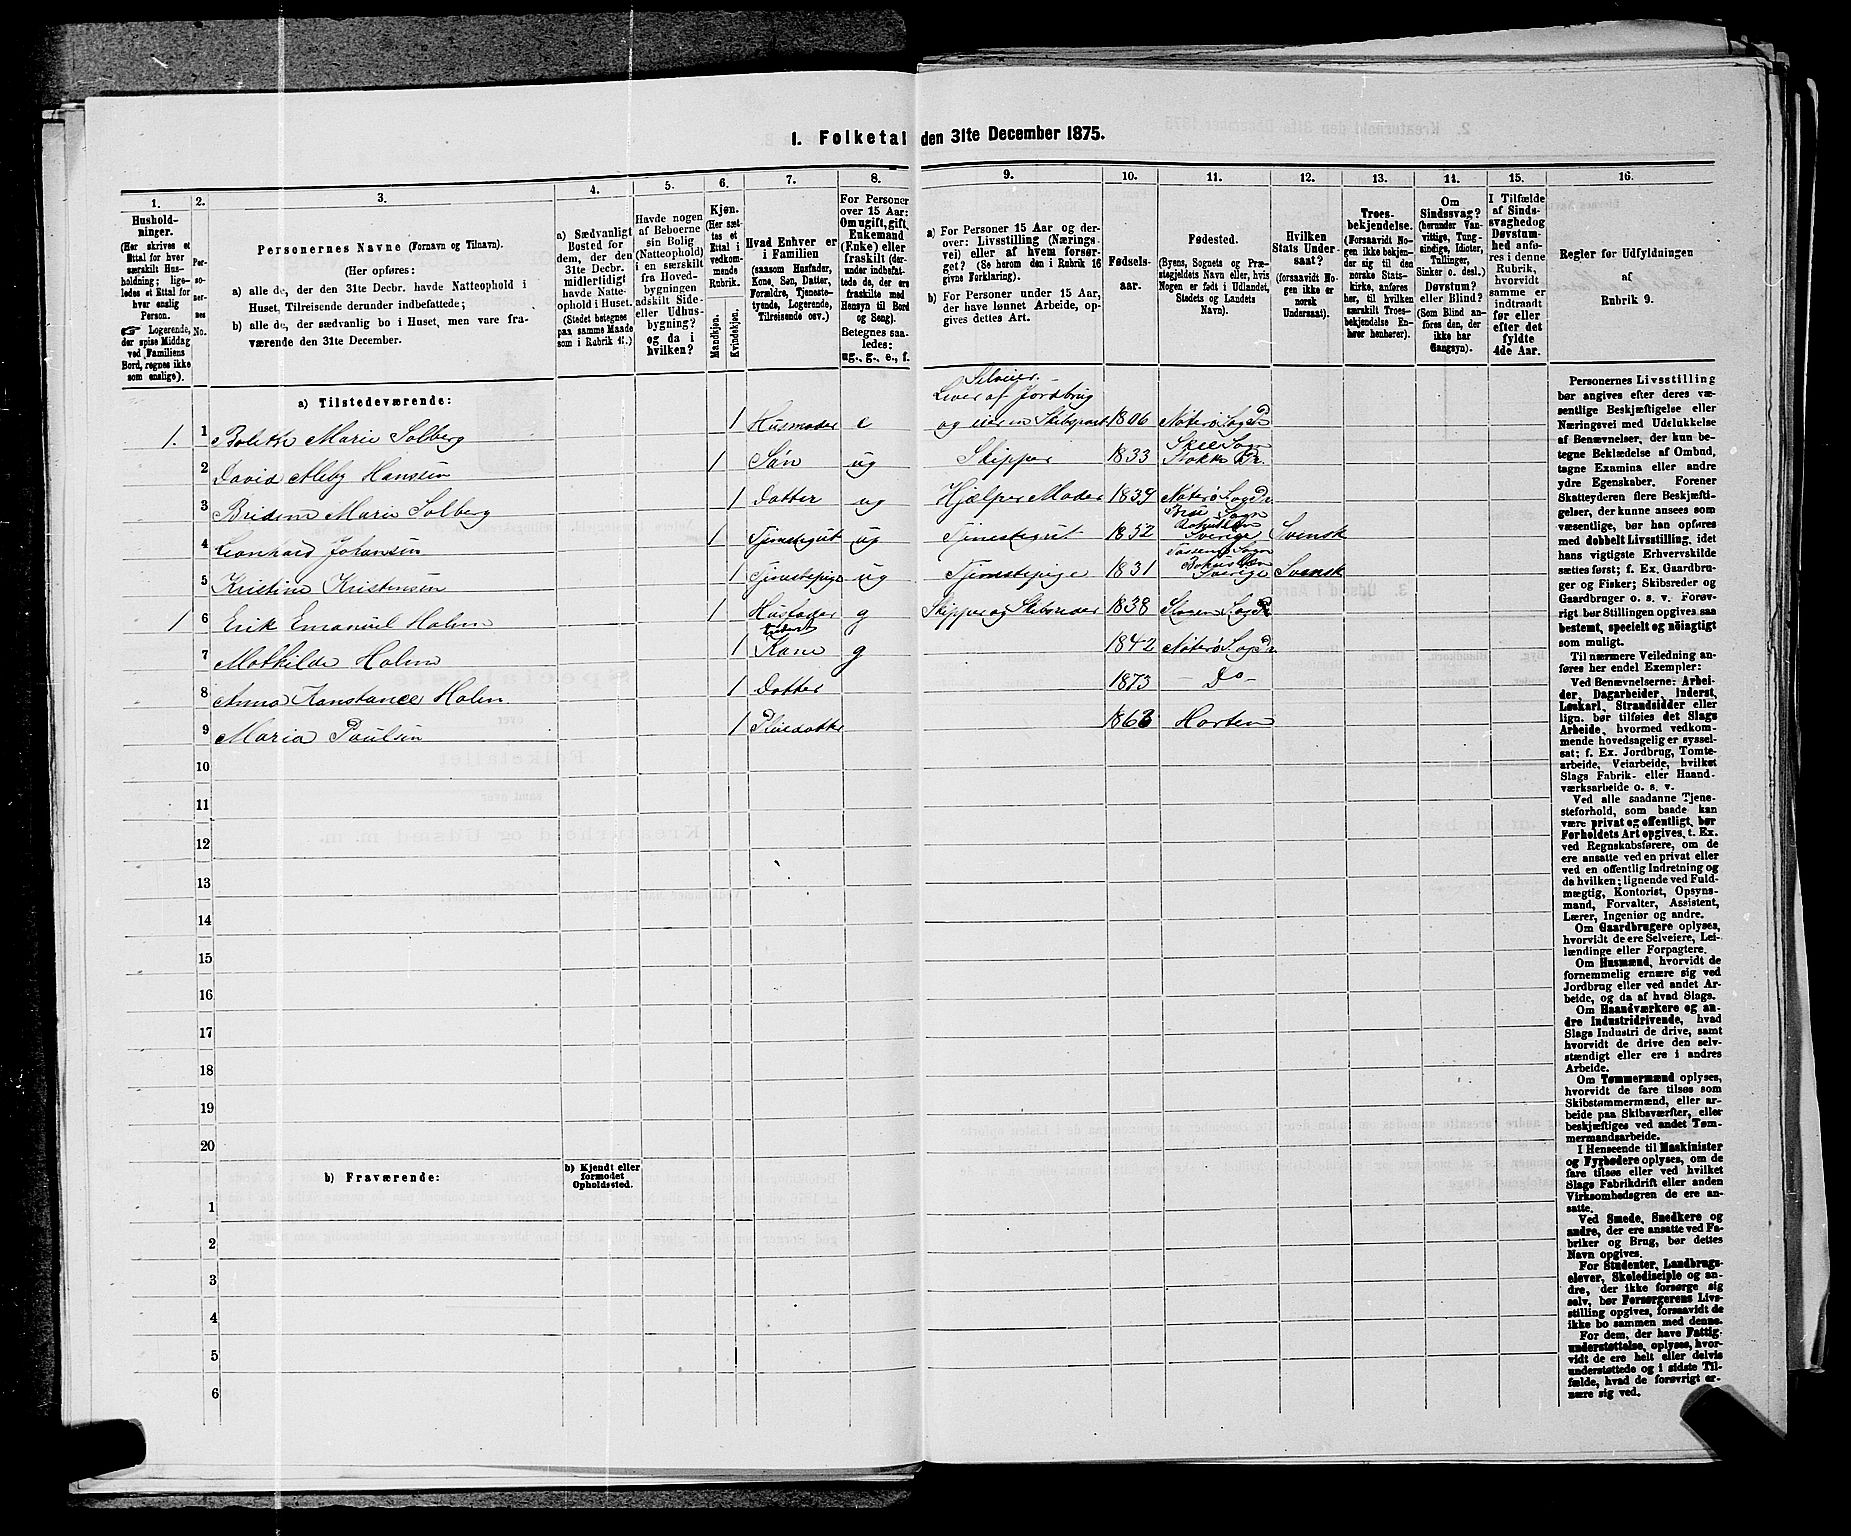 1. Folketal den 31te December 1875.
1. 2. 3. 4. 5. 6. 7. 8. 9. 10. 11. 12. 13. 14. 15. 16.
Hushold-
ninger.
(Her skrives et
Ettal for hver
særskilt Hus-
holdning; lige-
ledes et Ettal for
hver enslig
Person.
☞ Logerende,
der spise Middag
ved Familiens
Bord, regnes ikke
som enslige).
Per-
so-
ner-
nes
No.
Personernes Navne (Fornavn og Tilnavn).
(Her opføres:
a) alle de, der den 31te Decbr. havde Natteophold i
Huset, Tilreisende derunder indbefattede;
b) alle de, der sædvanlig bo i Huset, men vare fra-
værende den 31te December.
a) Sædvanligt
Bosted for
dem, der den
31te Decbr.
midlertidigt
havde Natte-
ophold i Huset.
(Stedet betegnes
paa samme Maade
som i Rubrik 11.)
Havde nogen
af Beboerne
sin Bolig
(Natteophold)
i en særskilt
fra Hoved-
bygningen
adskilt Side-
eller Udhus-
bygning?
og da i
hvilken?
Kjøn.
(Her sæt-
tes et
Ettal i
vedkom-
mende
Rubrik.
Mandkjøn.
Kvindekjøn.
Hvad Enhver er
i Familien
(saasom Husfader,
Kone, Søn, Datter,
Forældre, Tjeneste-
tyende, Logerende,
Tilreisende osv.)
For Personer
over 15 Aar:
Om ugift, gift,
Enkemand
(Enke) eller
fraskilt (der-
under indbefat-
tede de, der ere
fraskilte med
Hensyn til Bord
og Seng).
Betegnes saa-
ledes:
ug., g., e., f.
a) For Personer 15 Aar og der-
over: Livsstilling (Nærings-
vei) eller af hvem forsør-
get? (Se herom den i Rubrik 16
givne Forklaring).
b) For Personer under 15 Aar,
der have lønnet Arbeide, op-
gives dettes Art.
Fødsels-
aar.
Fødested.
(Byens, Sognets og Præ-
stegjeldets Navn eller, hvis
Nogen er født i Udlandet,
Stedets og Landets
Navn).
Hvilken
Stats Under-
saat?
(forsaavidt No-
gen ikke er
norsk
Undersaat).
Troes-
bekjendelse.
(Forsaavidt No-
gen ikke bekjen-
der sig til den
norske Stats-
kirke, anføres
her, til hvilken
særskilt Troes-
bekjendelse En-
hver henhører).
Om
Sindssvag?
(herunder Van-
vittige, Tung-
sindige, Idioter,
Tullinger,
Sinker o. desl.)
Døvstum?
eller Blind?
(Som Blind an-
føres den, der
ikke har
Gangsyn).
I Tilfælde
af Sinds-
svaghed og
Døvstum-
hed anfø-
res i denne
Rubrik,
hvorvidt
samme er
indtraadt
før eller
efter det
fyldte
4de Aar.
Regler for Udfyldningen
af
Rubrik 9.
a) Tilstedeværende:
Selveier.
Lever af Jordbrug
1. 1 Bolette Marie Solberg 1 Husmoder e 1806 Nøterø Sogn
Skee Sogn
2 David Aleby Hansen 1 Søn ug Skipper 1833 Stokke Pr.
3 Marie Solberg 1 Datter ug Hjælper Moder 1839 Nøterø Sogn
4 Leonhard Johansen 1 Tjenestegut ug Tjenestegut 1852 Sverige Svensk
5 Kristine Kristensen 1 Tjenestepige ug Tjenestepige 1831 Sverige Svensk
1 6 Erik Emanuel Holm 1 Husfader g Skipper og Skibsreder 1838
7 Mathilde Holm 1 Kone g 1842 Nøterø
8 Anna Konstance Holm 1 Datter 1873 — Do —
9 Maria Paulsen 1 Pleiedatter 1863 Horten
10
11
12
13
14
15
16
17
18
19
20
b) Fraværende:
b) Kjendt eller
formodet
Opholdssted.
1
2
3
4
5
6
Personernes Livsstilling
bør angives efter deres væ-
sentlige Beskjæftigelse eller
Næringsvei med Udelukkelse
af Benævnelser, der kun be-
tegne Beklædelse af Ombud,
tagne Examina eller andre
ydre Egenskaber. Forener
Skatteyderen flere Beskjæfti-
gelser, der kunne ansees som
væsentlige, bør han opføres
med dobbelt Livsstilling, idet
hans vigtigste Erhvervskilde
sættes først; f. Ex. Gaardbru-
ger og Fisker; Skibsreder og
Gaardbruger o. s. v. Forøv-
rigt bør Stillingen opgives saa
bestemt, specielt og nøiagtigt
som muligt.
Til nærmere Veiledning an-
føres her endel Exempler:
Ved Benævnelserne: Arbei-
der, Dagarbeider, Inderst,
Løskarl, Strandsidder eller
lign. bør tilføies det Slags
Arbeide, hvormed vedkom-
mende hovedsagelig er syssel-
sat; f. Ex. Jordbrug, Tomte-
arbeide, Veiarbeide, hvilket
Slags Fabrik- eller Haand-
værksarbeide o. s. v.
Ved alle saadanne Tjene-
steforhold, som baade kan
være privat og offentligt, bør
Forholdets Art opgives, t. Ex.
ved Regnskabsførere, om de
ere ansatte ved en privat eller
ved en offentlig Indretning og
da hvilken; lignende ved Fuld-
mægtig, Kontorist, Opsyns-
mand, Forvalter, Assistent,
Lærer, Ingeniør og andre.
Om Gaardbrugere oplyses,
hvorvidt de ere Selveiere, Lei-
lændinge eller Forpagtere.
Om Husmænd, hvorvidt de
fornemmelig ernære sig ved
Jordbrug eller ved andet Ar-
beide, og da af hvad Slags.
Om Haandværkere og an-
dre Industridrivende, hvad
Slags Industri de drive, samt
hvorvidt de drive den selv-
stændigt eller ere i andres
Arbeide.
Om Tømmermænd oplyses,
hvorvidt de fare tilsøs som
Skibstømmermænd, eller ar-
beide paa Skibsværfter, eller
beskjæftiges ved andet Tøm-
mermandsarbeide.
I Henseende til Maskinister
og Fyrbødere oplyses, om de
fare tilsøs eller ved hvilket
Slags Fabrikdrift eller anden
Virksomhedsgren de ere an-
satte.
Ved Smede, Snedkere og
andre, der ere ansatte ved Fa-
briker og Brug, bør dettes
Navn opgives.
For Studenter, Landbrugs-
elever, Skoledisciple og an-
dre, der ikke forsørge sig
selv, bør Forsørgerens Livs-
stilling opgives, forsaavidt de
ikke bo sammen med denne.
For dem, der have Fattig-
understøttelse, oplyses, hvor-
vidt de ere helt eller delvis
understøttede og i sidste Til-
fælde, hvad de forøvrigt er-
nære sig ved.